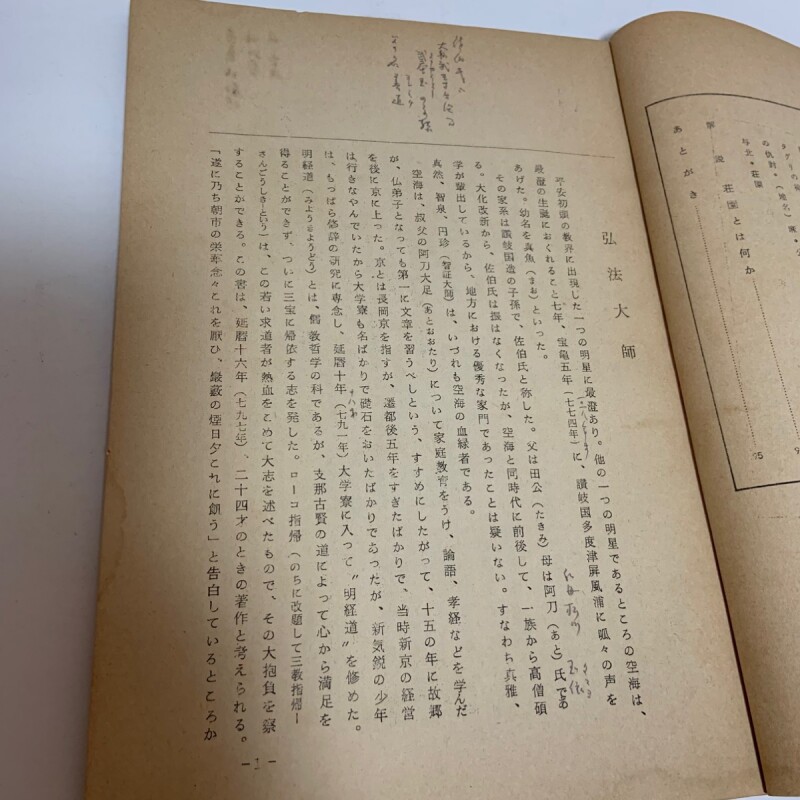 解説 荘園とは何か
あとがき 95
弘法大師
平安初頭の教界に出現した一つの明星に最澄あり。他の一つの明星であるところの空海は、
最澄の生誕におくれること七年、宝亀五年（七七四年）に、讃岐国多度津屏風浦に呱々の声を
あげた。幼名を真魚（まお）といった。
その家系は讃岐国造の子孫で、佐伯氏と称した。父は田公（たきみ）母は阿刀（あと）氏であ
る。大化改新から、佐伯氏は振はなくなったが、空海と同時代に前後して、一族から高僧碩
学が輩出しているから、地方における優秀な家門であったことは疑いない。すなわち真雅、
真然、智泉、円珍（智証大師）は、いづれも空海の血縁者である。
空海は、叔父の阿刀大足（あとおおたり）について家庭教育をうけ、論語、孝経などを学んだ
が、仏弟子となっても第一に文章を習うべしという、すすめにしたがって、十五の年に故郷
を後に京に上った。京とは長岡京を指すが、遷都後五年をすぎたばかりで、当時新京の経営
は行きなやんでいたから大学寮も名ばかりで礎石をおいたばかりであったが、新気鋭の少年
は、もっぱら修辞の研究に専念し、延暦十年（七九一年）大学寮に入って〝明経道〟を修めた。
明経道（みようぎようどう）とは、儒教哲学の科であるが、支那古賢の道によって心から満足を
得ることができず、ついに三宝に帰依する志を発した。ローコ指帰（のちに改題して三教指帰ー
さんごうしきーという）は、この若い求道者が熱血をこめて大志を述べたもので、その大抱負を察
することができる。この書は、延暦十六年（七九七年）、二十四才のときの著作と考えられる。
「遂に乃ち朝市の栄華念々これを厭ひ、巌藪の煙日夕これに飢う」と告白しているところか
－1－